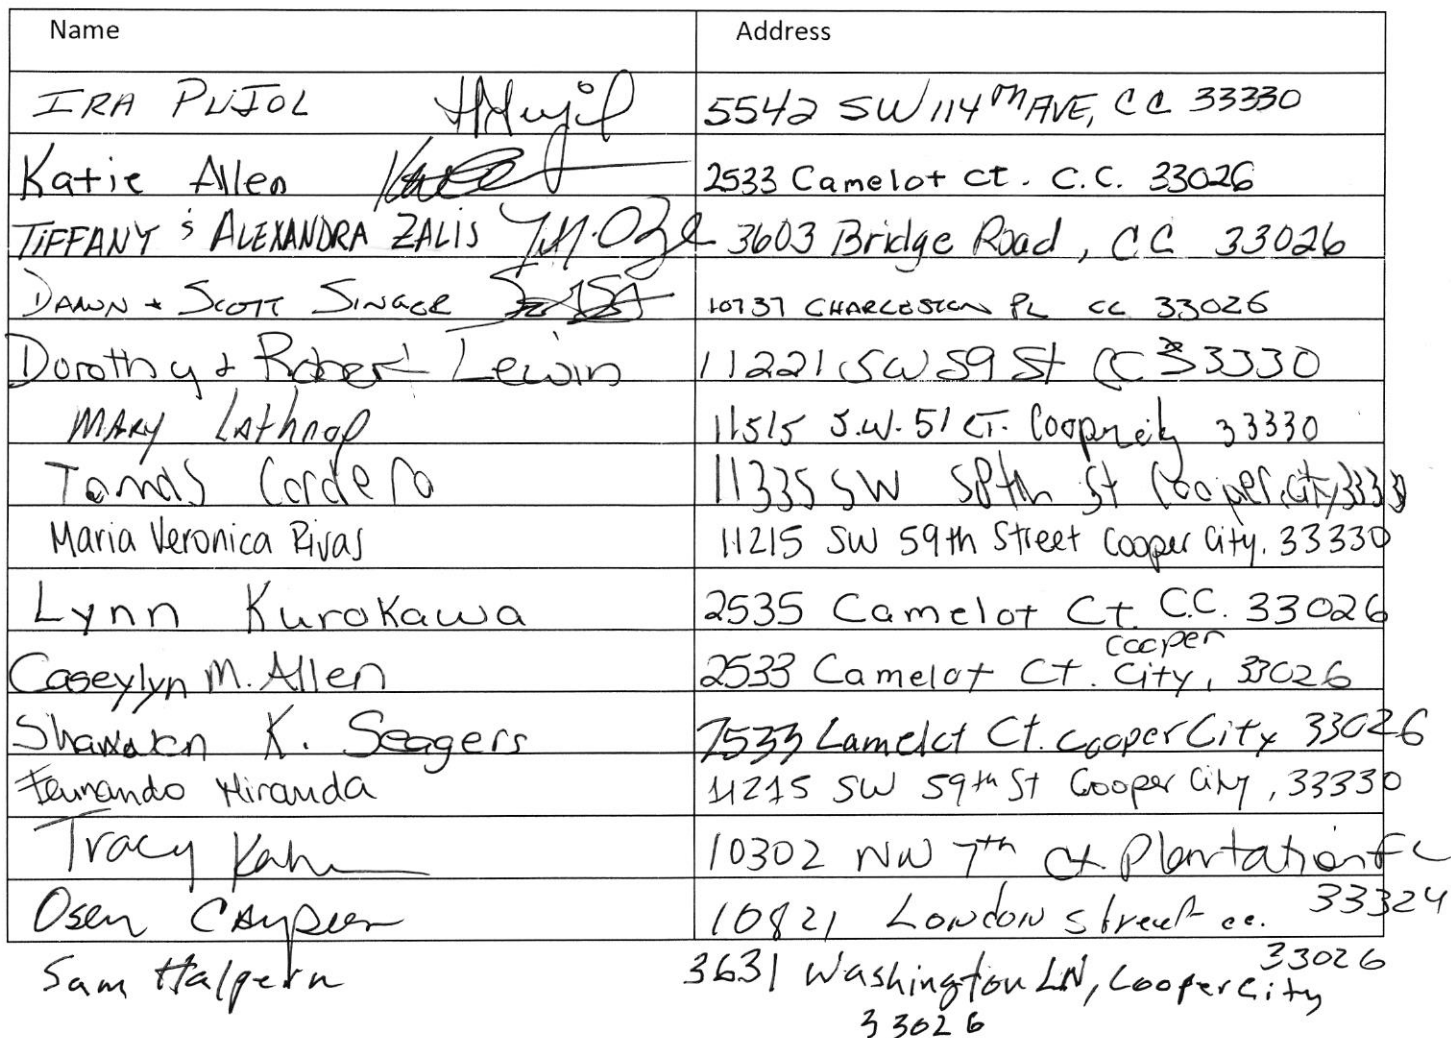 Name Address
IRA PUJOL 5542 SW 114TH AVE, CC 33330
Katie Allen 2533 Camelot Ct. C.C. 33026
TIFFANY & ALEXANDRA ZALIS 3603 Bridge Road, CC 33026
DAWN + SCOTT SINGER 10737 CHARLESTON PL CC 33026
Dorothy + Robert Lewin 11221 SW 59 St CC 33330
MARY Lathrop 11515 S.W. 51 CT. Cooper City 33330
Tomas Cordero 11335 SW 58th St Cooper City 3333
Maria Veronica Rivas 11215 SW 59th Street Cooper City, 33330
Lynn Kurokawa 2535 Camelot Ct. C.C. 33026
Caseylyn M. Allen 2533 Camelot Ct. Cooper City, 33026
K. Seagers 2533 Camelot Ct. Cooper City 33026
Fernando Miranda 11215 SW 59th St Cooper City, 33330
Tracy Kahn 10302 NW 7th Ct. Plantation FL 33324
10821 LONDON street cc. 33026
Sam Halpern 3631 Washington LN, Cooper City 33026